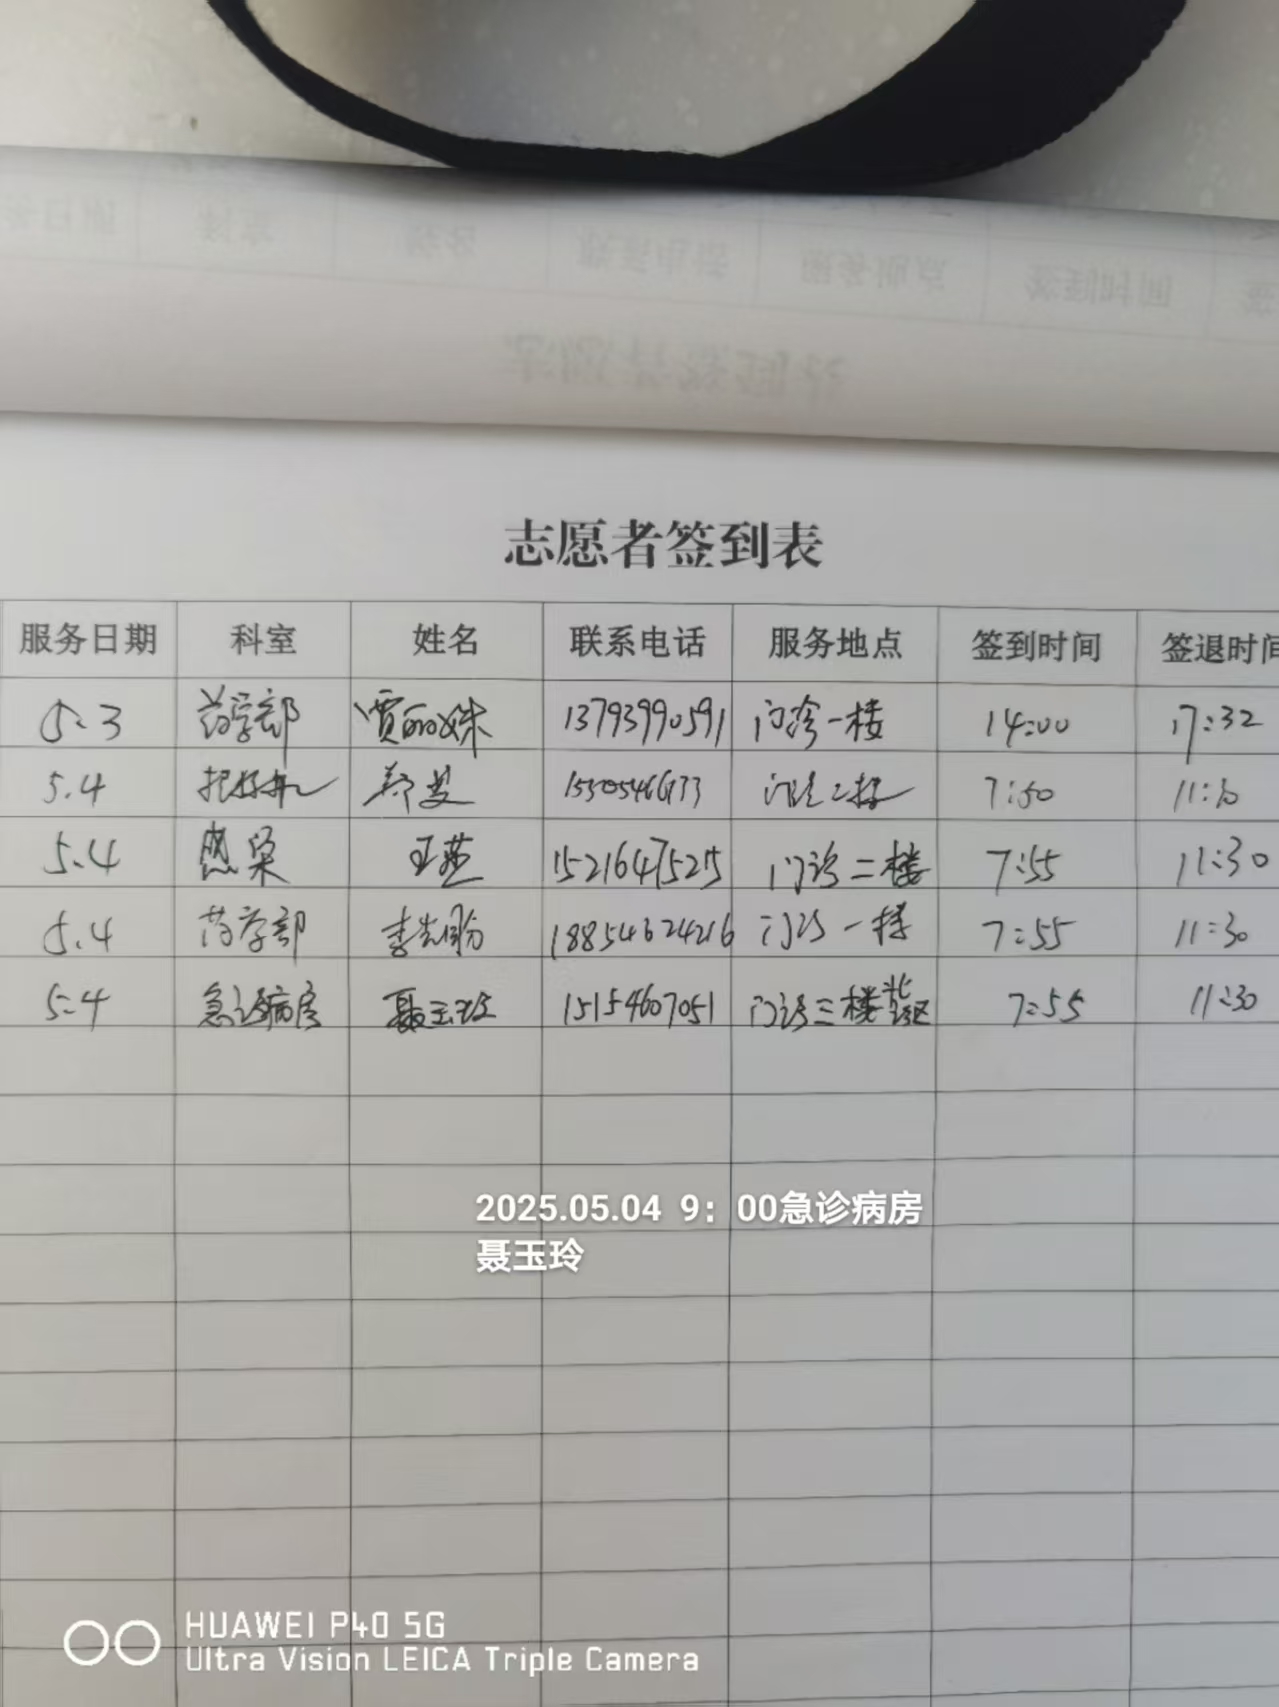 志愿者签到表
服务日期 科室 姓名 联系电话 服务地点 签到时间 签退时间
5.3 药学部 贾丽姝 13793990591 门诊一楼 14:00 17:32
5.4 7:50
5.4 感染 王燕 15216475215 门诊二楼 7:55 11:30
5.4 药学部 18854624216 门诊一楼 7:55 11:30
5.4 急诊病房 聂玉玲 15154607051 门诊三楼北 7:55 11:30
2025.05.04 9：00急诊病房
聂玉玲
HUAWEI P40 5G
Ultra Vision LEICA Triple Camera